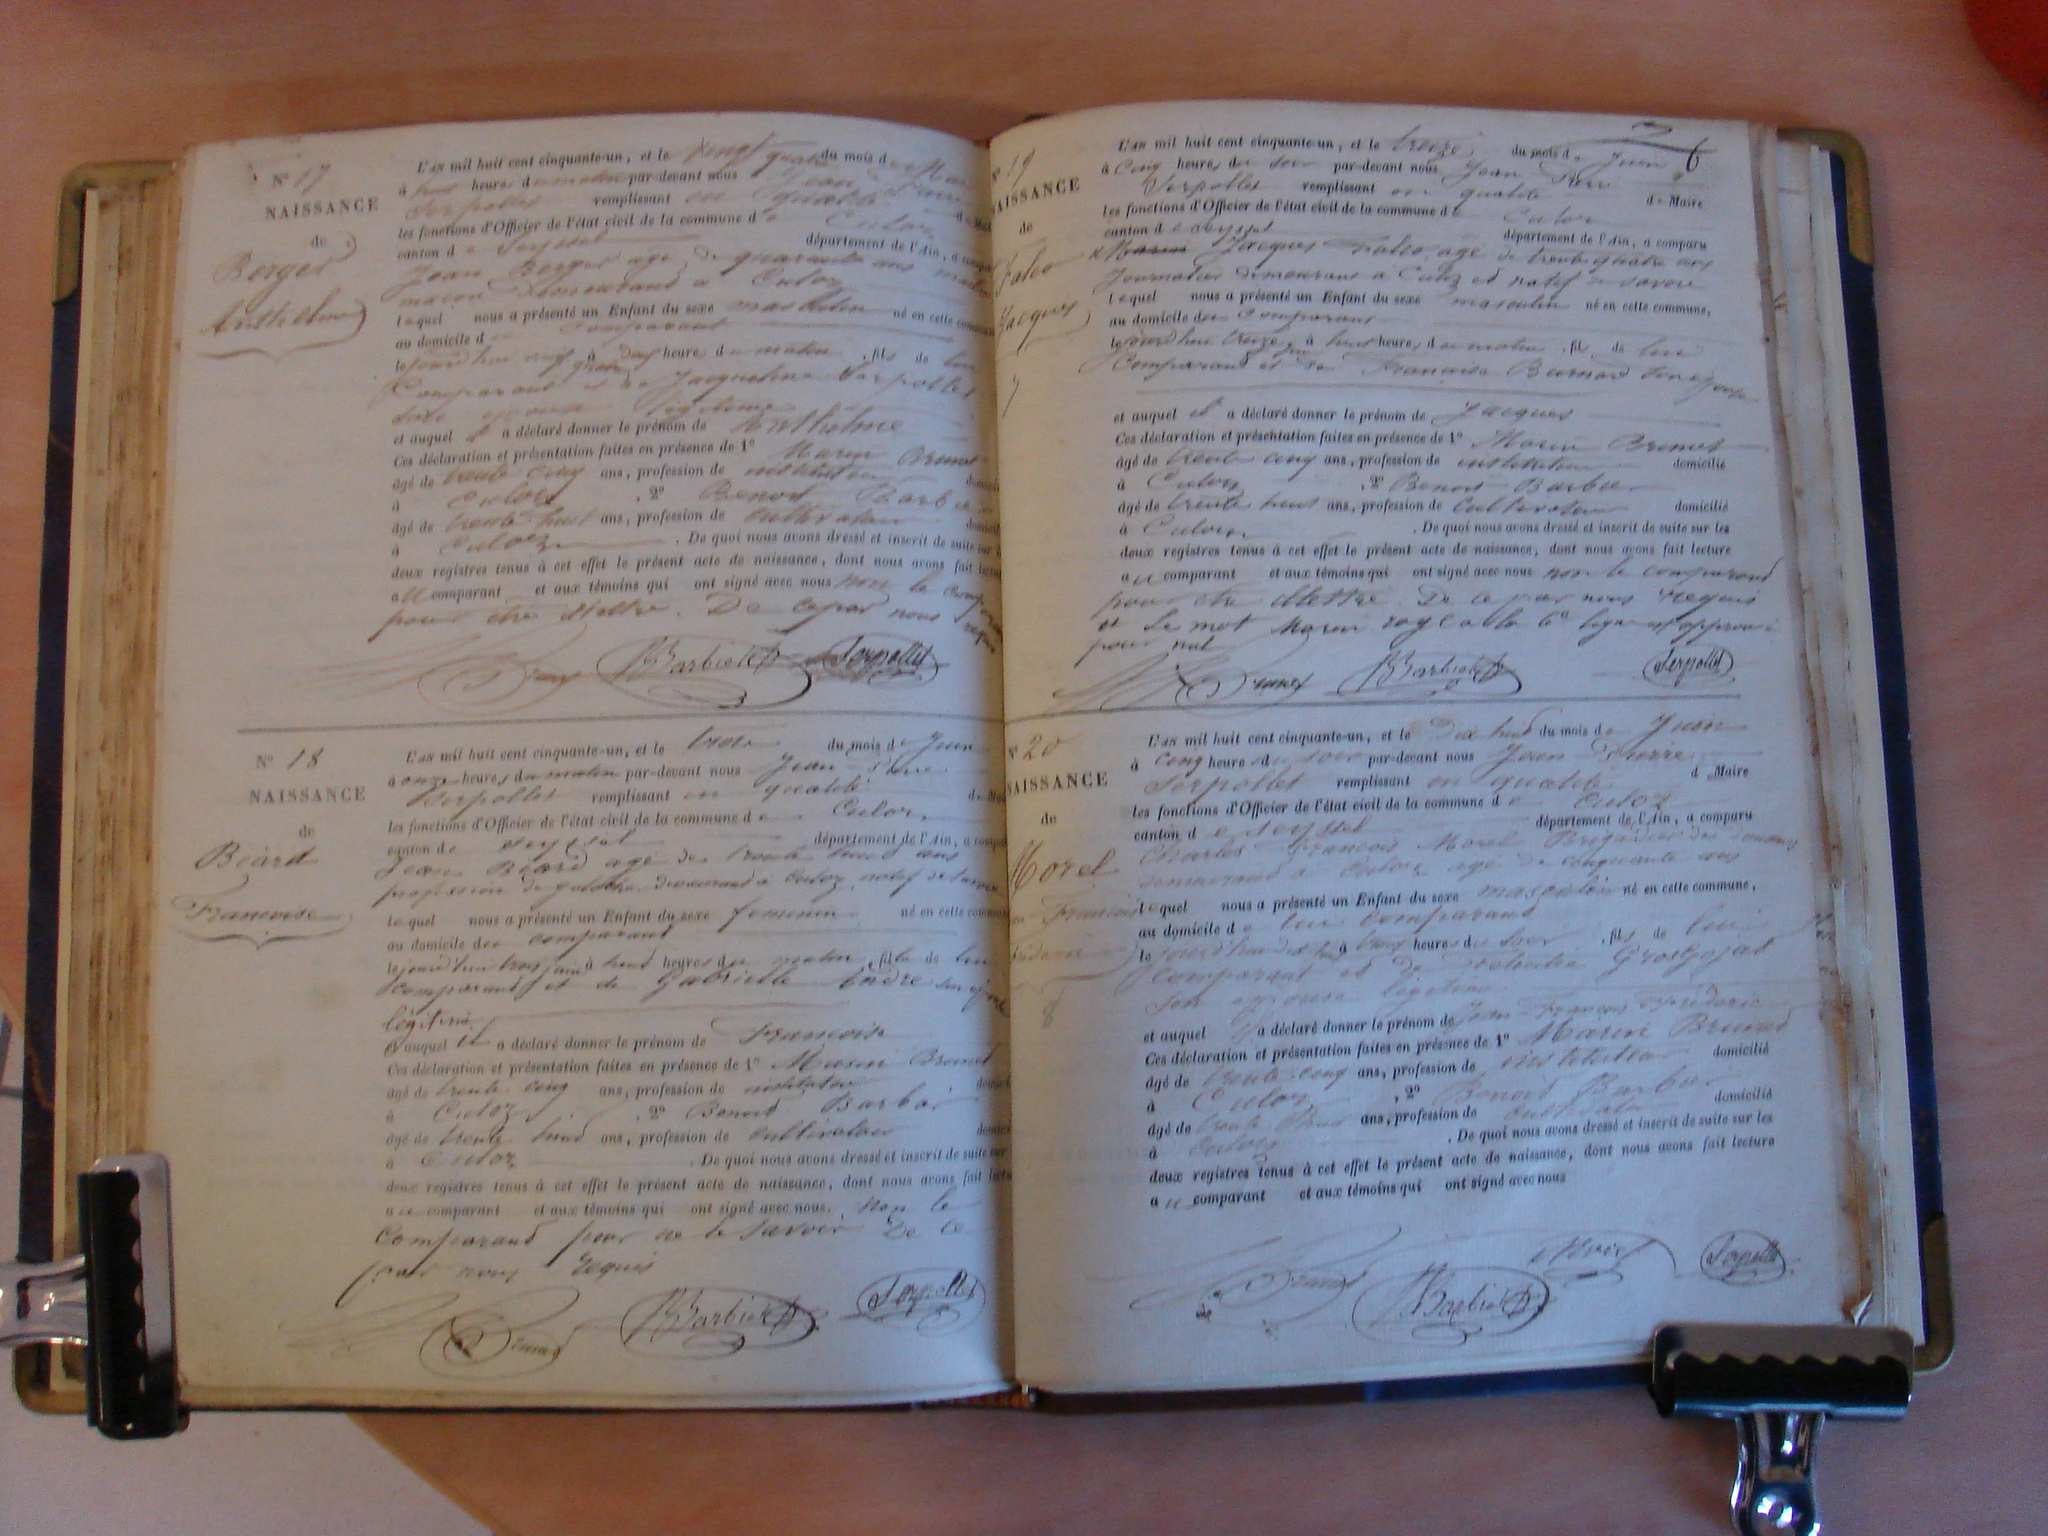 N° 17
NAISSANCE
de
Berger
Anthelme
L'an mil huit cent cinquante-un, et le vingt quatre du mois de Mai
à huit heures du matin par-devant nous Jean Pierre
Serpollet remplissant en qualité de Maire
les fonctions d'Officier de l'état civil de la commune de Culoz
canton de Seyssel département de l'Ain, a comparu
Jean Berger agé de quarante ans
maçon demeurant à Culoz
lequel nous a présenté un Enfant du sexe masculin né en cette commune
au domicile du comparant
le jourd'hui vingt quatre à heures du matin, fils de lui
Comparant et de Jacqueline Serpollet
son épouse légitime
et auquel il a déclaré donner le prénom de Anthelme
Ces déclaration et présentation faites en présence de 1° Marin Brunet
âgé de trente cinq ans, profession de instituteur
à Culoz, 2° Benoit Barbier
âgé de trente huit ans, profession de cultivateur
à Culoz. De quoi nous avons dressé et inscrit de suite sur les
deux registres tenus à cet effet le présent acte de naissance, dont nous avons fait lecture
au comparant et aux témoins qui ont signé avec nous non le comparant
pour être illettré. De ce par nous requis
Brunet BBarbier Serpollet
N° 18
NAISSANCE
de
Béard
Francoise
L'an mil huit cent cinquante-un, et le trois du mois de Juin
à onze heures du matin par-devant nous Jean Pierre
Serpollet remplissant en qualité de Maire
les fonctions d'Officier de l'état civil de la commune de Culoz
canton de Seyssel département de l'Ain, a comparu
Jean Béard agé de trente huit ans
profession de demeurant à Culoz natif de Savoie
lequel nous a présenté un Enfant du sexe feminin né en cette commune
au domicile du comparant
le jourd'hui trois juin à huit heures du matin, fille de lui
comparant et de Gabrielle André son épouse
légitime
et auquel il a déclaré donner le prénom de Francoise
Ces déclaration et présentation faites en présence de 1° Marin Brunet
âgé de trente cinq ans, profession de instituteur
à Culoz, 2° Benoit Barbier
âgé de trente huit ans, profession de cultivateur
à Culoz. De quoi nous avons dressé et inscrit de suite sur les
deux registres tenus à cet effet le présent acte de naissance, dont nous avons fait lecture
au comparant et aux témoins qui ont signé avec nous. non le
Comparant pour ne le savoir De ce
par nous requis
Brunet BBarbier Serpollet
N° 19
NAISSANCE
de
Falco
Jacques
7
L'an mil huit cent cinquante-un, et le treize du mois de Juin
à Cinq heures du soir par-devant nous Jean Pierre
Serpollet remplissant en qualité de Maire
les fonctions d'Officier de l'état civil de la commune de Culoz
canton de Seyssel département de l'Ain, a comparu
Marin Jacques Falco agé de trente quatre ans
Journalier demeurant à Culoz et natif de Savoie
lequel nous a présenté un Enfant du sexe masculin né en cette commune,
au domicile du Comparant
le jourd'hui treize à huit heures du matin, fils de lui
Comparant et de Francoise Burnard son épouse
et auquel il a déclaré donner le prénom de Jacques
Ces déclaration et présentation faites en présence de 1° Marin Brunet
âgé de trente cinq ans, profession de instituteur domicilié
à Culoz, 2° Benoit Barbier
âgé de trente huit ans, profession de Cultivateur domicilié
à Culoz. De quoi nous avons dressé et inscrit de suite sur les
deux registres tenus à cet effet le présent acte de naissance, dont nous avons fait lecture
au comparant et aux témoins qui ont signé avec nous non le comparant
pour être illettré. De ce par nous requis
et Le mot Marin rayé à la 6e ligne est approuvé
pour nul
Brunet BBarbier Serpollet
N° 20
NAISSANCE
de
Morel
Francois
L'an mil huit cent cinquante-un, et le Dix huit du mois de Juin
à Cinq heures du soir par-devant nous Jean Pierre
Serpollet remplissant en qualité de Maire
les fonctions d'Officier de l'état civil de la commune de Culoz
canton de Seyssel département de l'Ain, a comparu
Charles François Morel Brigadier des Douanes
demeurant à Culoz agé de cinquante ans
lequel nous a présenté un Enfant du sexe masculin né en cette commune,
au domicile de lui comparant
le jourd'hui dix huit à heures du soir, fils de lui
comparant et de Grosjojat
son épouse légitime
et auquel il a déclaré donner le prénom de Jean François Fréderic
Ces déclaration et présentation faites en présence de 1° Marin Brunet
âgé de trente cinq ans, profession de instituteur domicilié
à Culoz, 2° Benoit Barbier
âgé de trente huit ans, profession de cultivateur domicilié
à Culoz. De quoi nous avons dressé et inscrit de suite sur les
deux registres tenus à cet effet le présent acte de naissance, dont nous avons fait lecture
au comparant et aux témoins qui ont signé avec nous
Brunet BBarbier Morel Serpollet